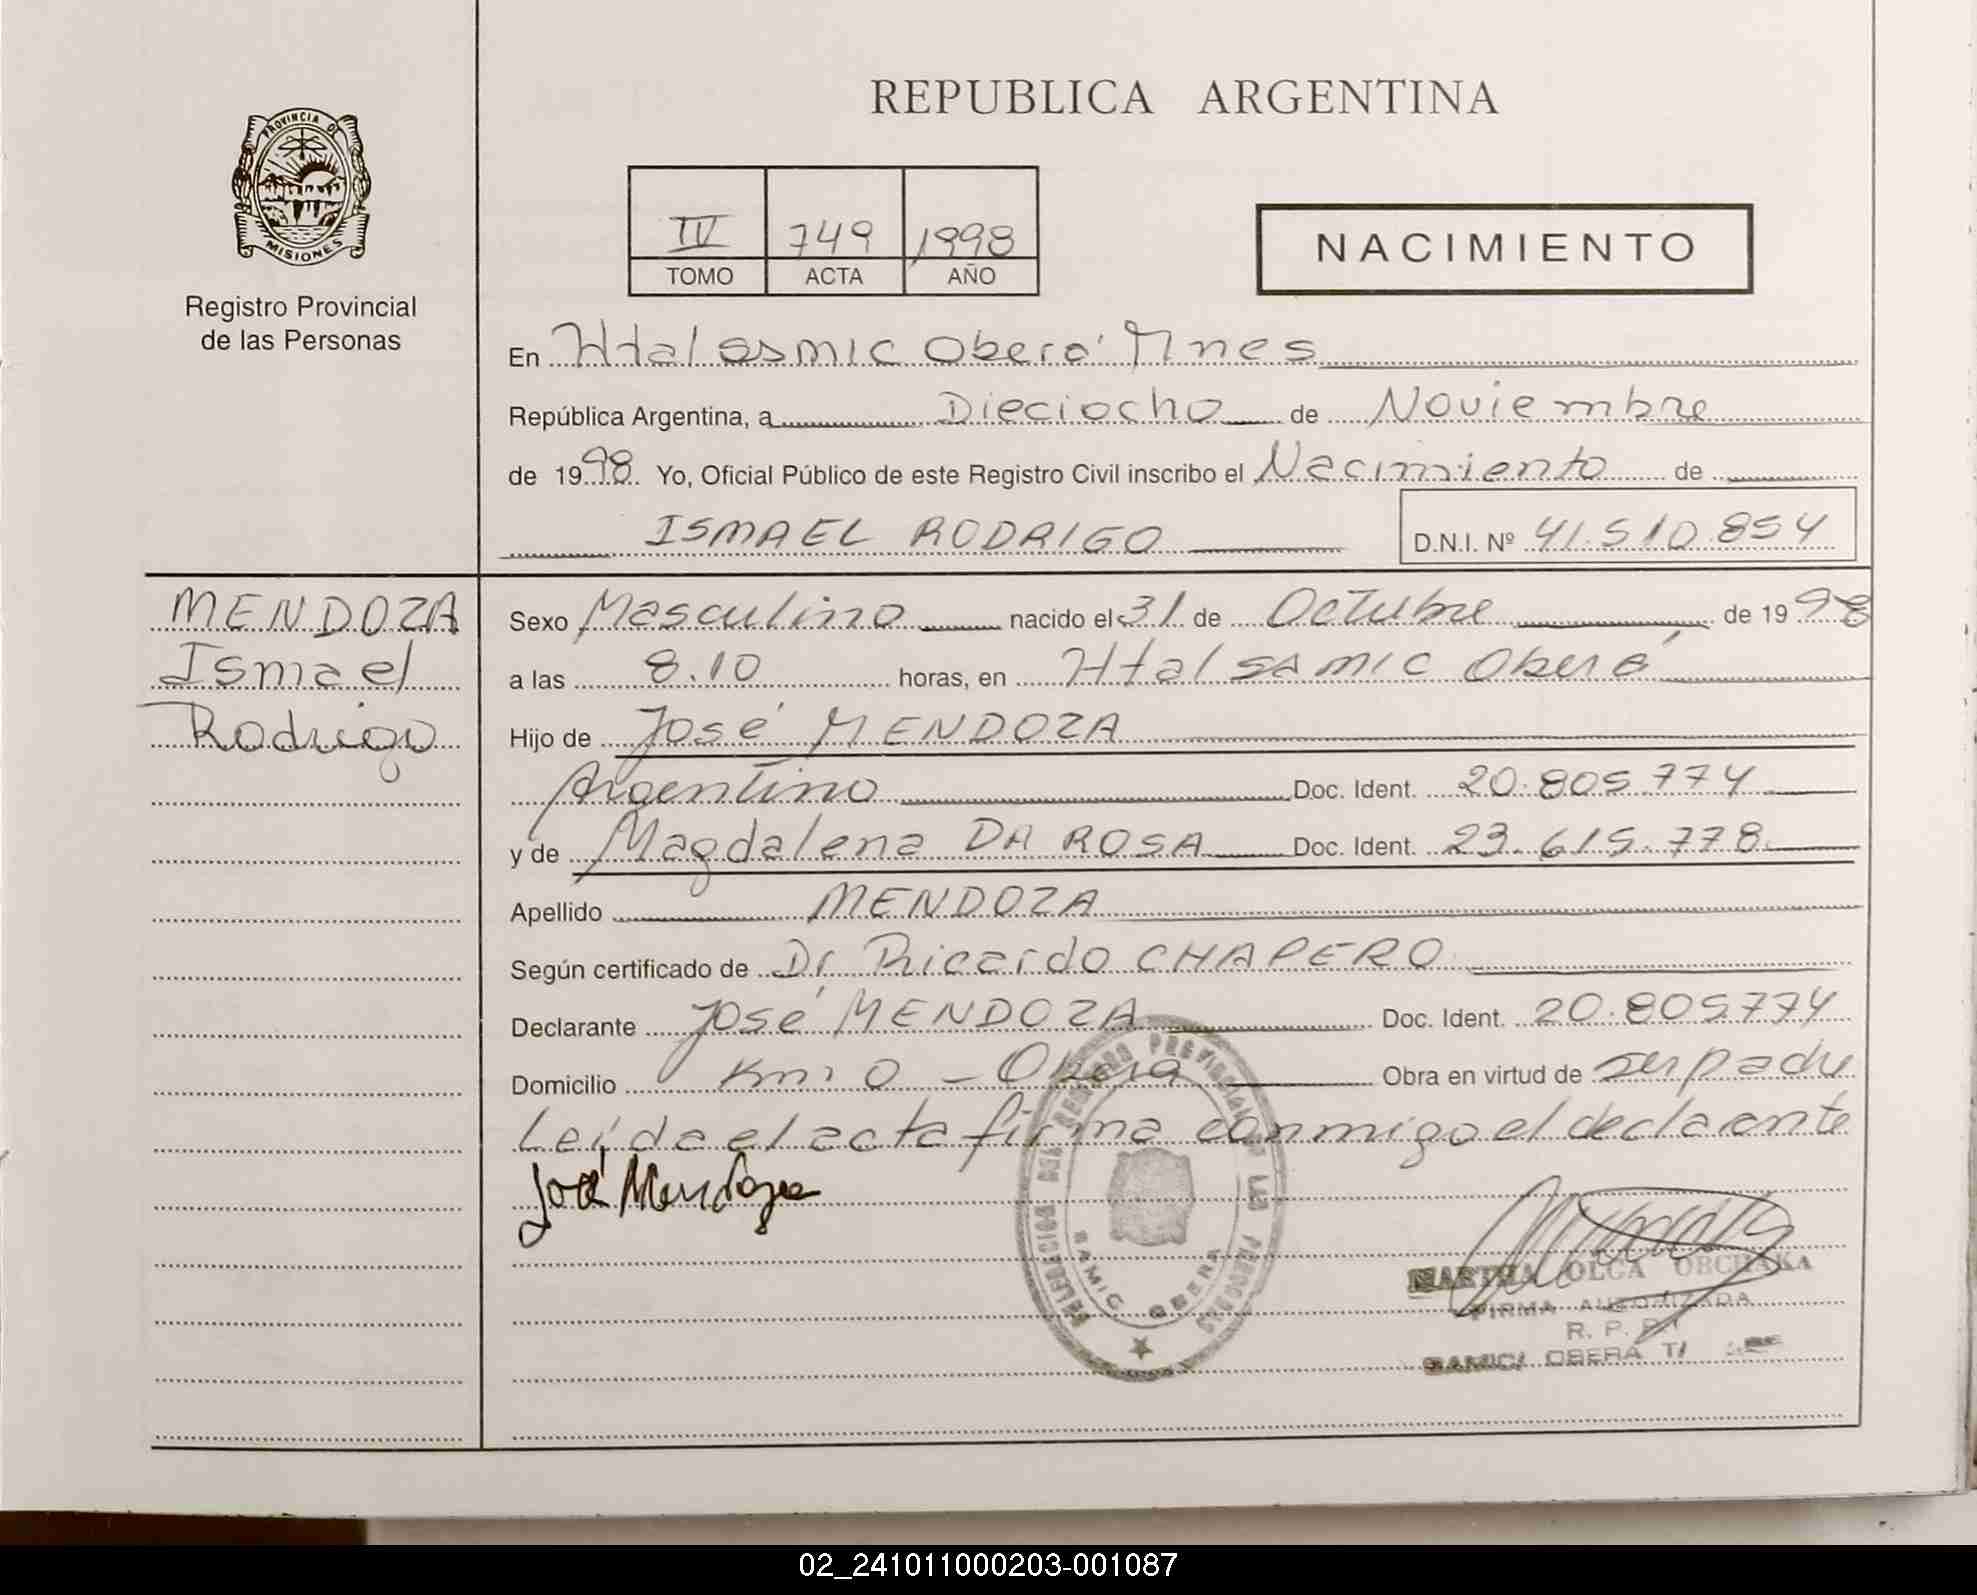 REPUBLICA ARGENTINA
PROVINCIA DE
MISIONES
Registro Provincial
de las Personas
IV 749 1998
TOMO ACTA AÑO
NACIMIENTO
En Htal samic Oberá Mnes
República Argentina, a Dieciocho de Noviembre
de 1998. Yo, Oficial Público de este Registro Civil inscribo el Nacimiento de
ISMAEL RODRIGO D.N.I. Nº 41.510.854
MENDOZA
Ismael
Rodrigo
Sexo Masculino nacido el 31 de Octubre de 1998
a las 8.10 horas, en Htal samic Oberá
Hijo de José MENDOZA
Argentino Doc. Ident. 20.805.774
y de Magdalena DA ROSA Doc. Ident. 23.615.778
Apellido MENDOZA
Según certificado de Dr Ricardo CHAPERO
Declarante José MENDOZA Doc. Ident. 20.805.774
Domicilio Km 0 - Oberá Obra en virtud de ser padre
Leída el acta firma conmigo el declarante
José Mendoza
DELEGACION DEL REGISTRO PROVINCIAL DE LAS PERSONAS
SAMIC OBERA
MARTHA OLGA ORCHAKA
FIRMA AUTORIZADA
R. P. P.
SAMIC OBERA
02_241011000203-001087